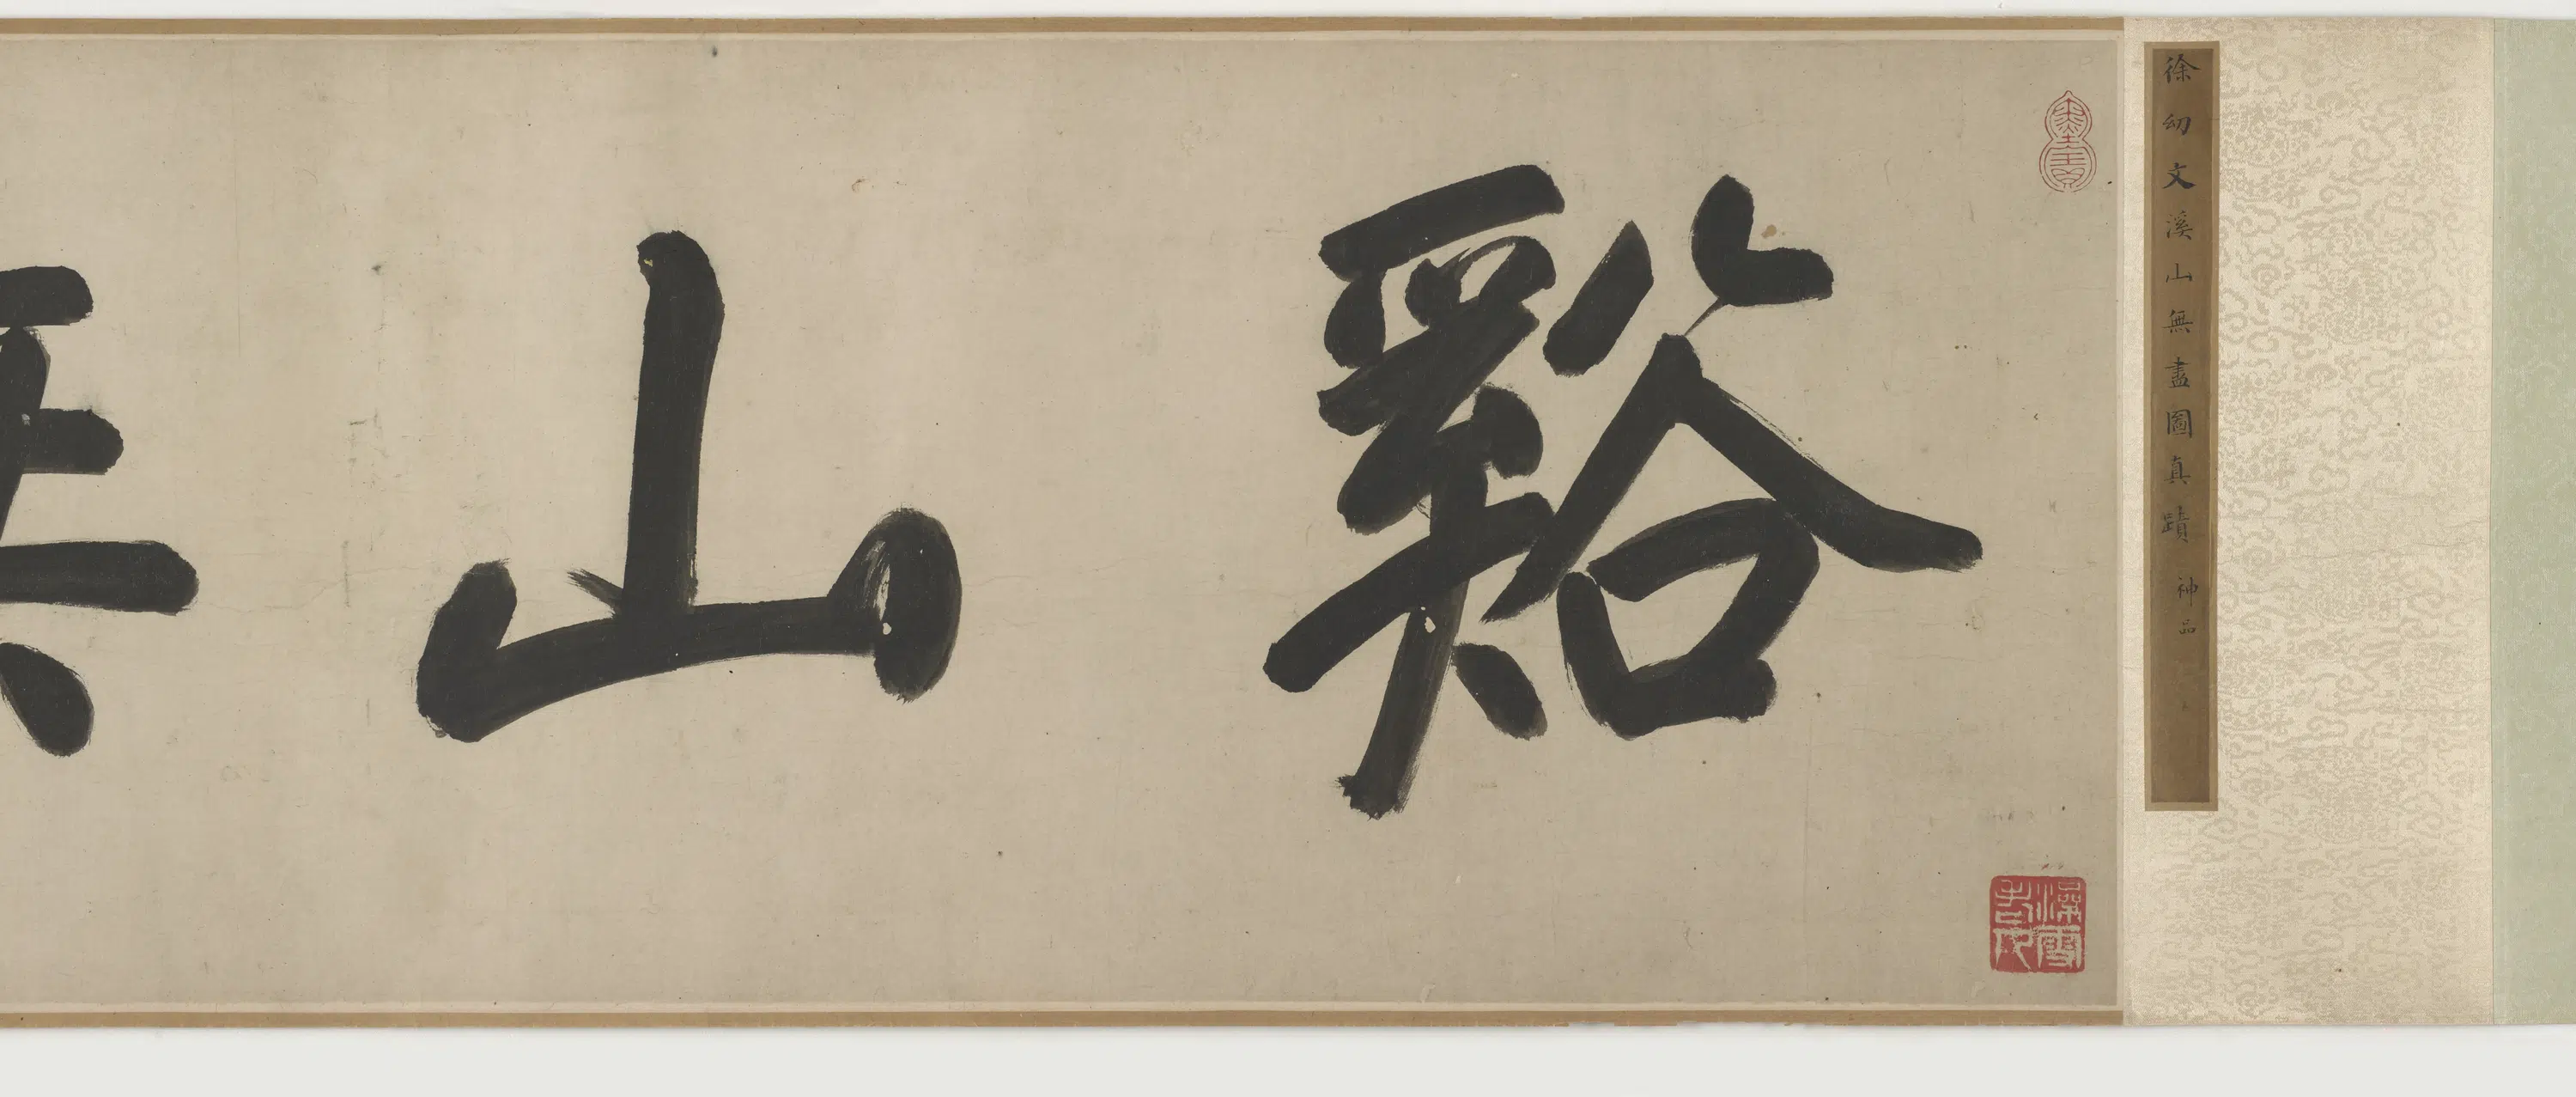 徐幼文溪山無盡圖真蹟 神品
谿山無